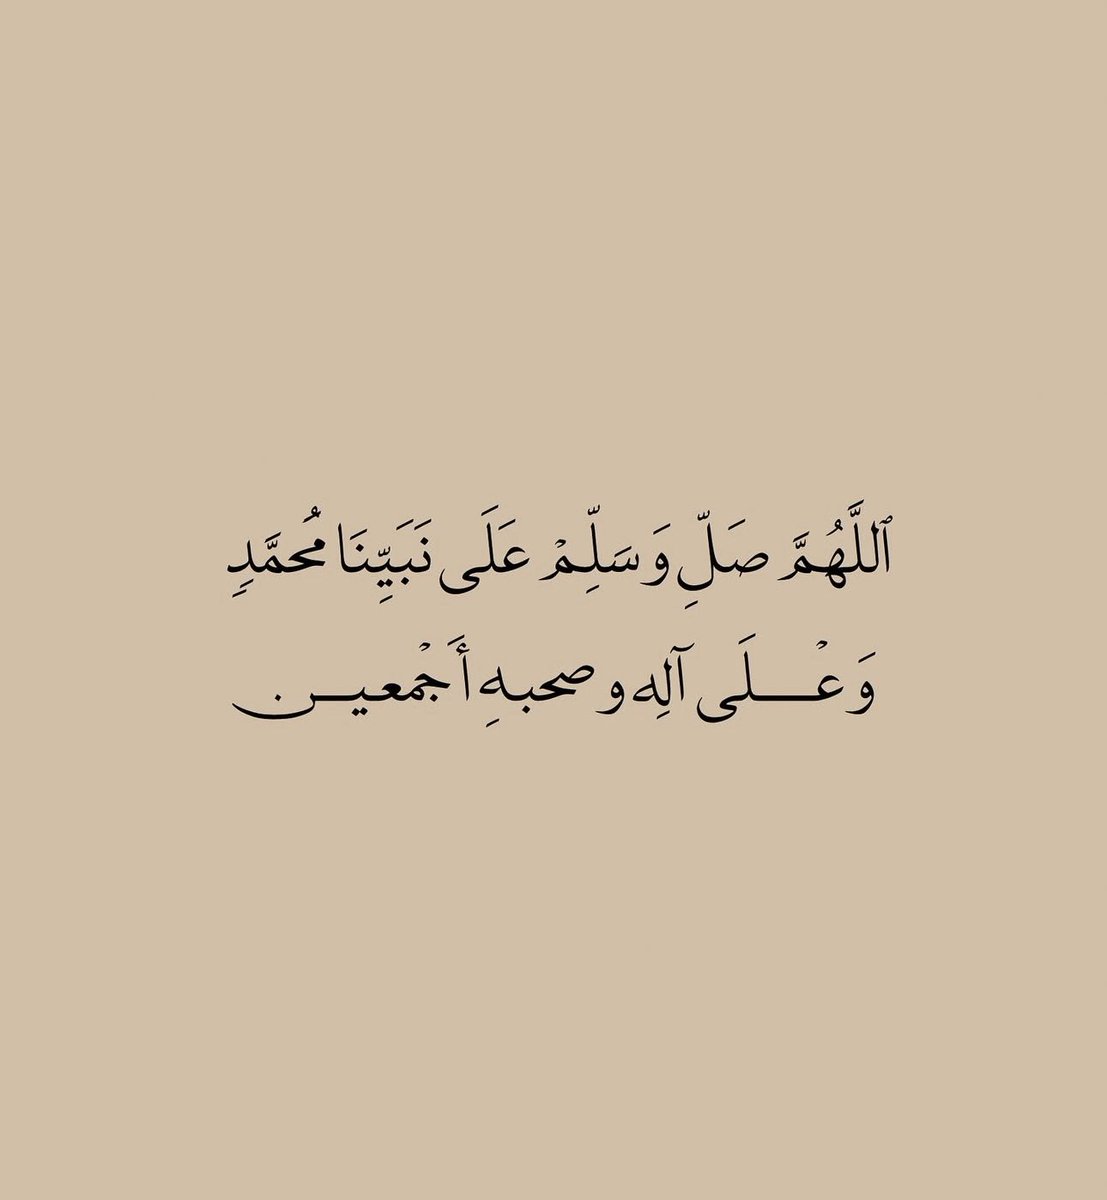 ٱللَّهُمَّ صَلِّ وَسَلِّمْ عَلَى نَبَيِّنَا مُحمَّدٍ
وَعْـــلَى آلِه وصحبهِ أَجْمعيـــن